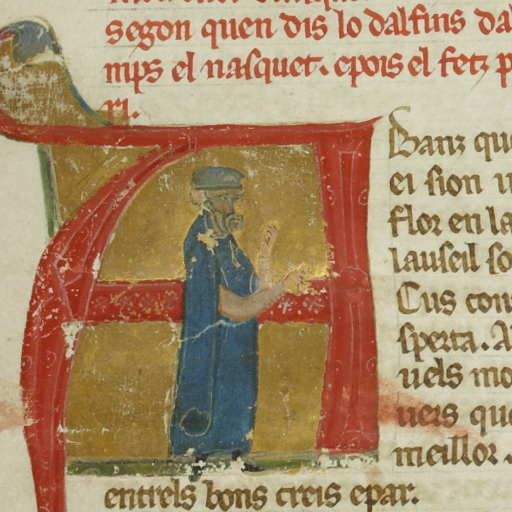 segon quen dis lo dalfins dal
mps el nasquet. epois el fetz p
ri.
Abanz que
ei sion u
flor en la
lauseil so
Cus com
sperta. A
uels mo
uers que
meillor.
entrels bons creis epar.